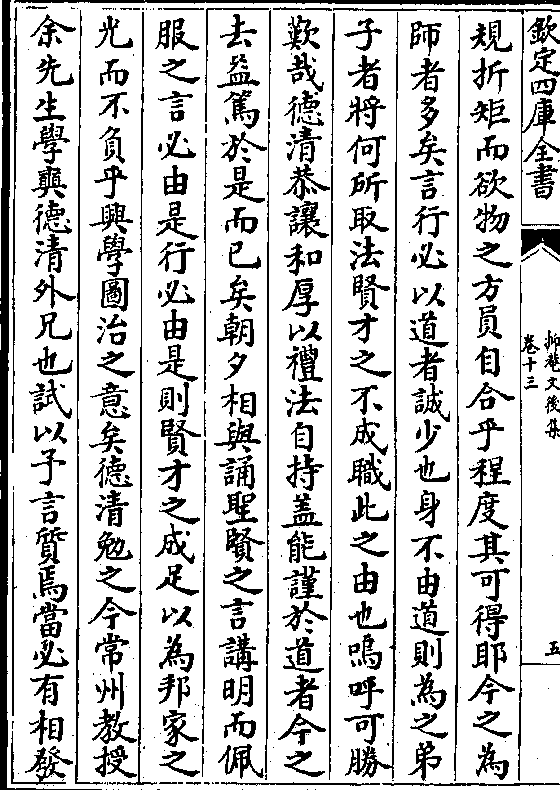 欽定四庫全書
抑菴文後集
卷十三
五
規折矩而欲物之方員自合乎程度其可得耶今之為
師者多矣言行必以道者誠少也身不由道則為之弟
子者將何所取法賢才之不成職此之由也嗚呼可勝
歎哉德清恭讓和厚以禮法自持盖能謹於道者今之
去益篤於是而已矣朝夕相與誦聖賢之言講明而佩
服之言必由是行必由是則賢才之成足以為邦家之
光而不負乎興學圖治之意矣德清勉之今常州教授
余先生學䕫德清外兄也試以予言質焉當必有相發